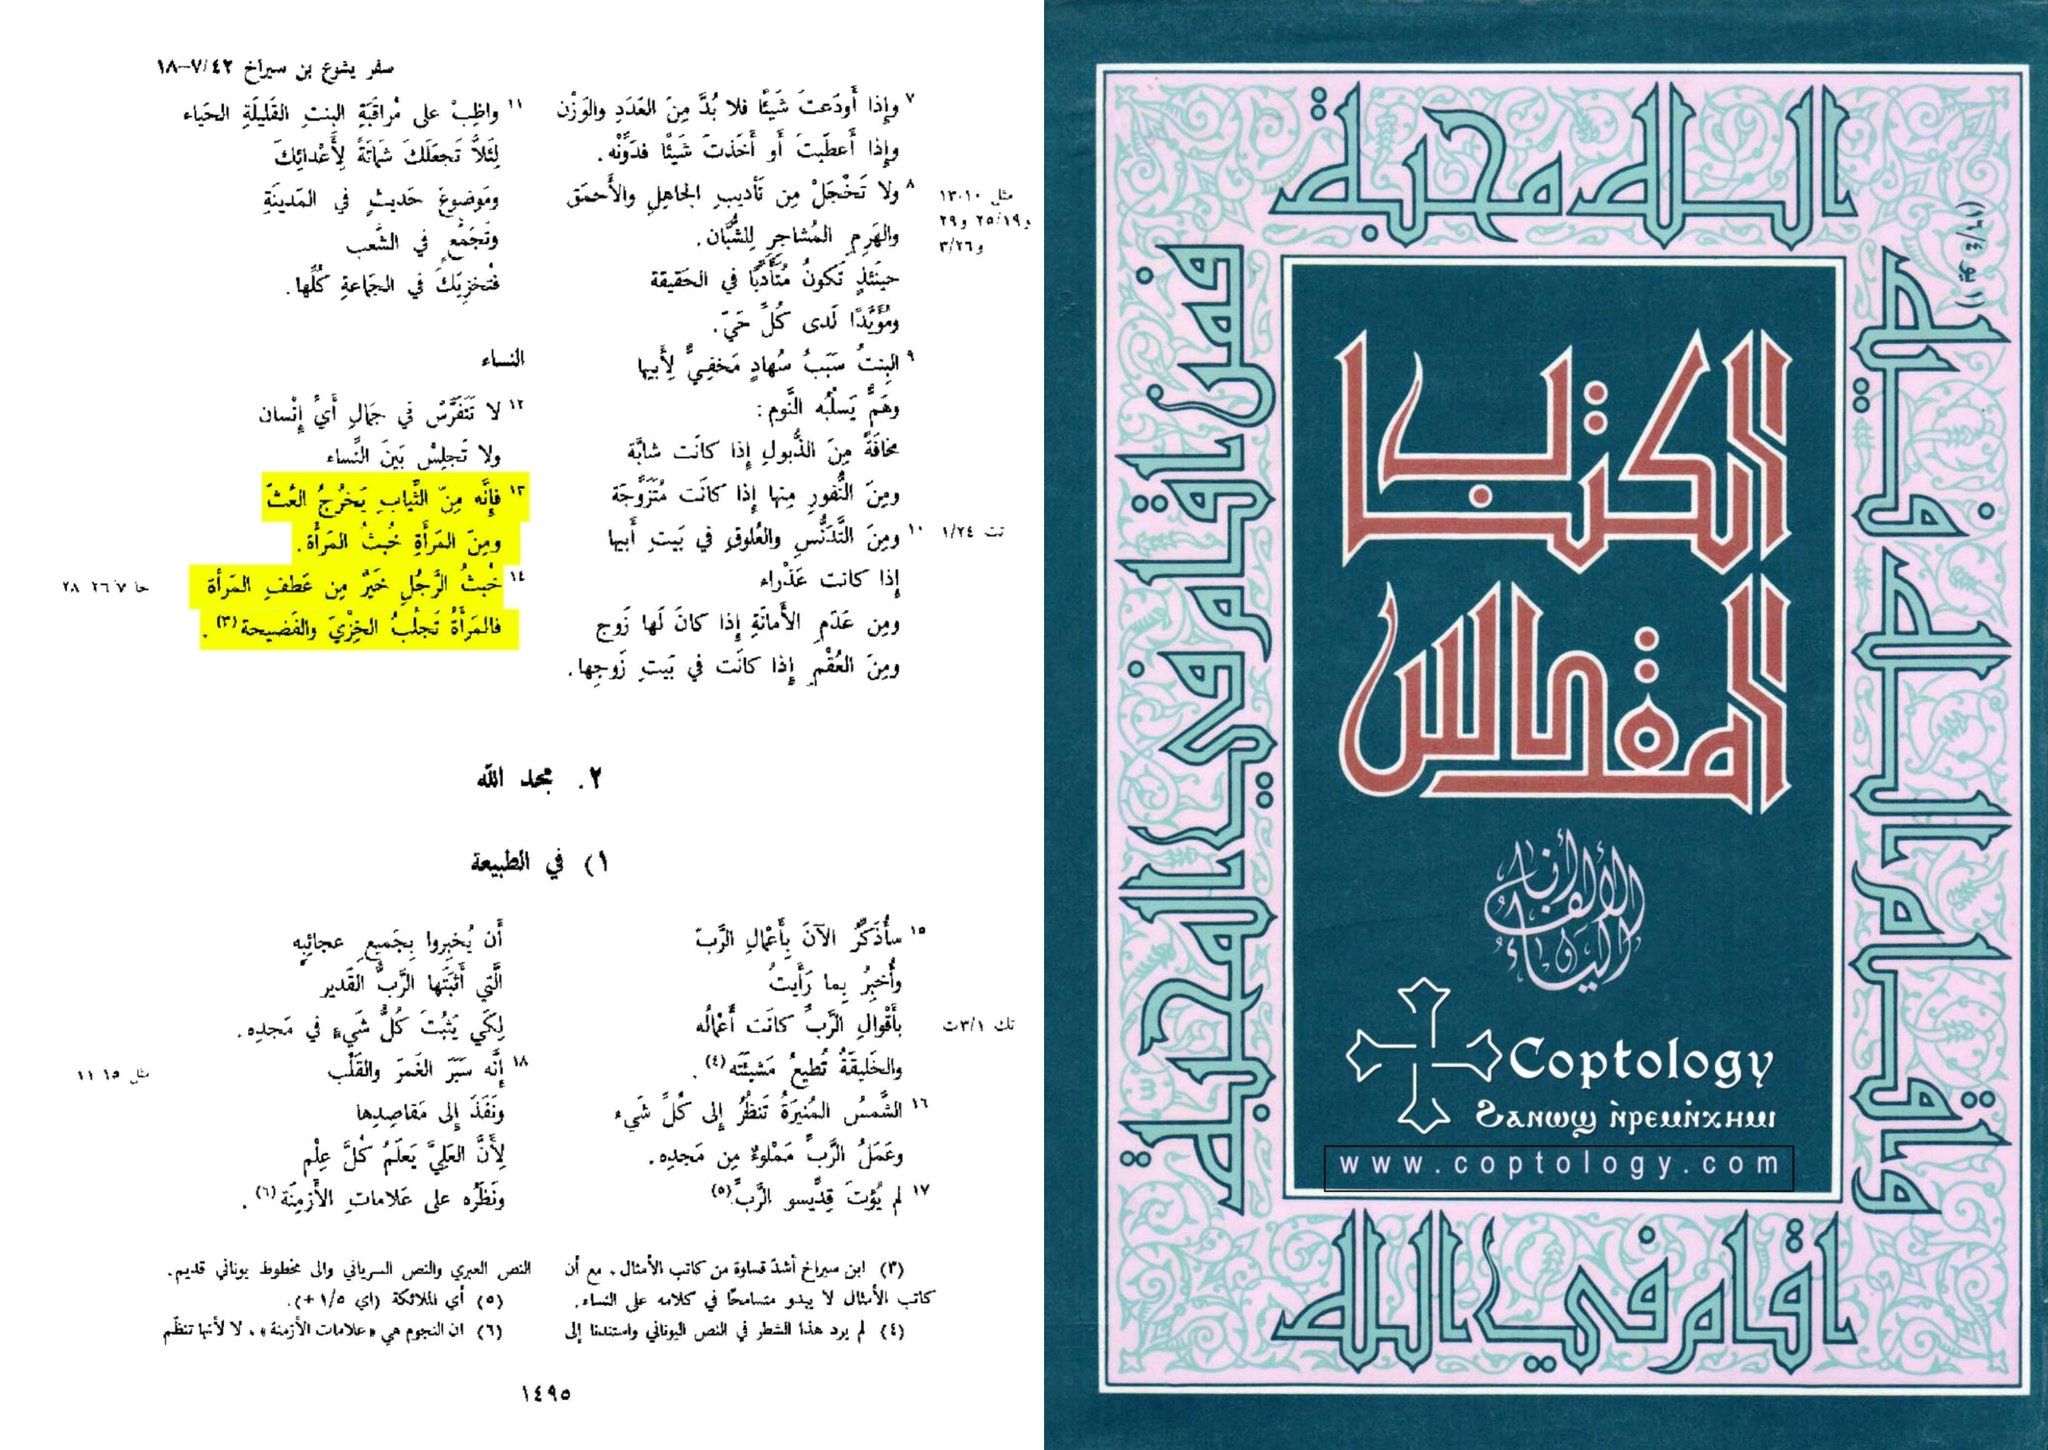 سفر يشوع بن سيراخ ٧/٤٢-١٨
٧ وإِذا أَودَعتَ شَيئًا فلا بُدَّ مِنَ العَدَدِ والوَزْن
وإِذا أَعطَيتَ أَو أَخَذتَ شَيئًا فدَوِّنْه.
٨ ولا تَخْجَلْ مِن تَأديبِ الجاهِلِ والأَحمَق
والهَرِمِ المُشاجِرِ لِلشُّبَّان.
حينَئذٍ تَكونُ مُتَأَدِّبًا في الحَقيقة
ومُؤَيَّدًا لَدى كُلِّ حَيّ.
٩ البِنتُ سَبَبُ سُهادٍ مَخفِيٌّ لِأَبيها
وهَمٌّ يَسلُبُه النَّوم:
مَخافَةً مِنَ الذُّبولِ إِذا كانَت شابَّة
ومِنَ النُّفورِ مِنها إِذا كانَت مُتَزَوِّجَة
١٠ ومِنَ التَّدَنُّسِ والعُلوقِ في بَيتِ أَبيها
إِذا كانت عَذْراء
ومِن عَدَمِ الأَمانَةِ إِذا كانَ لَها زَوج
ومِنَ العُقْمِ إِذا كانَت في بَيتِ زَوجِها.
مثل ١٣:١٠
و٢٥/١٩ و٢٩
و٣/٢٦
تث ١/٢٤
١١ واظِبْ على مُراقَبَةِ البِنتِ القَليلَةِ الحَياء
لِئَلاَّ تَجعَلَكَ شَماتَةً لِأَعْدائِكَ
ومَوضوعَ حَديثٍ في المَدينَةِ
وتَجَمُّعٍ في الشَّعب
فتُخزِيَكَ في الجَماعةِ كُلِّها.
النساء
١٢ لا تَتَفَرَّسْ في جَمالِ أَيِّ إِنْسان
ولا تَجلِسْ بَينَ النِّساء
١٣ فإِنَّه مِنَ الثِّيابِ يَخرُجُ العُثّ
ومِنَ المَرأَةِ خُبثُ المَرأَة.
١٤ خُبثُ الرَّجُلِ خَيرٌ مِن عَطفِ المَرأَة
فالمَرأَةُ تَجلُبُ الخِزْيَ والفَضيحة(٣).
جا ٧ ٢٦ ٢٨
٢. مجد الله
١) في الطبيعة
١٥ سأُذَكِّرُ الآنَ بِأَعْمالِ الرَّبّ
وأُخبِرُ بِما رَأَيتُ
بأَقْوالِ الرَّبِّ كانَت أَعْمالُه
والخَليقَةُ تُطيعُ مَشيئَتَه(٤).
١٦ الشَّمسُ المُنيرَةُ تَنظُرُ إِلى كُلِّ شَيء
وعَمَلُ الرَّبِّ مَمْلوءٌ مِن مَجدِه.
١٧ لم يُؤتَ قِدِّيسو الرَّبِّ(٥)
تك ٣/١ت
أَن يُخبِروا بِجَميعِ عجائِبِه
الَّتي أَثبَتَها الرَّبُّ القَدير
لِكَي يَثبُتَ كُلُّ شَيءٍ في مَجدِه.
١٨ إِنَّه سَبَرَ الغَمرَ والقَلْب
ونَفَذَ إِلى مَقاصِدِها
لِأَنَّ العَلِيَّ يَعلَمُ كُلَّ عِلْم
ونَظَرُه على عَلاماتِ الأَزمِنَة(٦).
مثل ١٥ ١١
(٣) ابن سيراخ أشدّ قساوة من كاتب الأمثال، مع أن
كاتب الأمثال لا يبدو متسامحًا في كلامه على النساء.
(٤) لم يرد هذا الشطر في النص اليوناني واستندنا إلى
النص العبري والنص السرياني والى مخطوط يوناني قديم.
(٥) أي الملائكة (اي ١/٥ +).
(٦) ان النجوم هي «علامات الأزمنة»، لا لأنها تنظّم
١٤٩٥
الله محبة
(١ يو ١٦/٤)
فمن اقام في المحبة
اقام في الله
واقام الله فيه
الكتاب
المقدس
أنا الألف والياء
Coptology
Ϩⲁⲛⲱϣ ⲛ̀ⲣⲉⲙⲛ̀ⲭⲏⲙⲓ
www.coptology.com